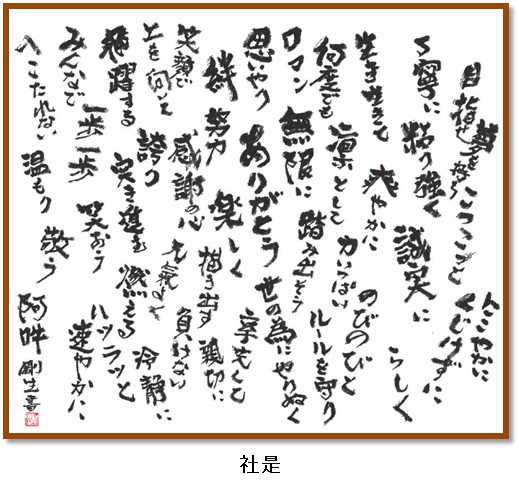 目指せ
夢をもとう
こつこつと
にこやかに
くじけずに
丁寧に
粘り強く
誠実に
らしく
生き生きと
爽やかに
のびのびと
何度でも
凛として
力いっぱい
ルールを守り
ロマン
無限に
踏み出そう
思いやり
ありがとう
世の為に
やりぬく
絆
努力
楽しく
笑顔で
感謝の心
描き出す
親切に
上を向いて
誇り
元気よく
負けない
飛躍する
突き進む
燃える
冷静に
みんなで
一歩一歩
笑おう
ハツラツと
へこたれない
温もり
敬う
速やかに
阿吽
剛生書
社是